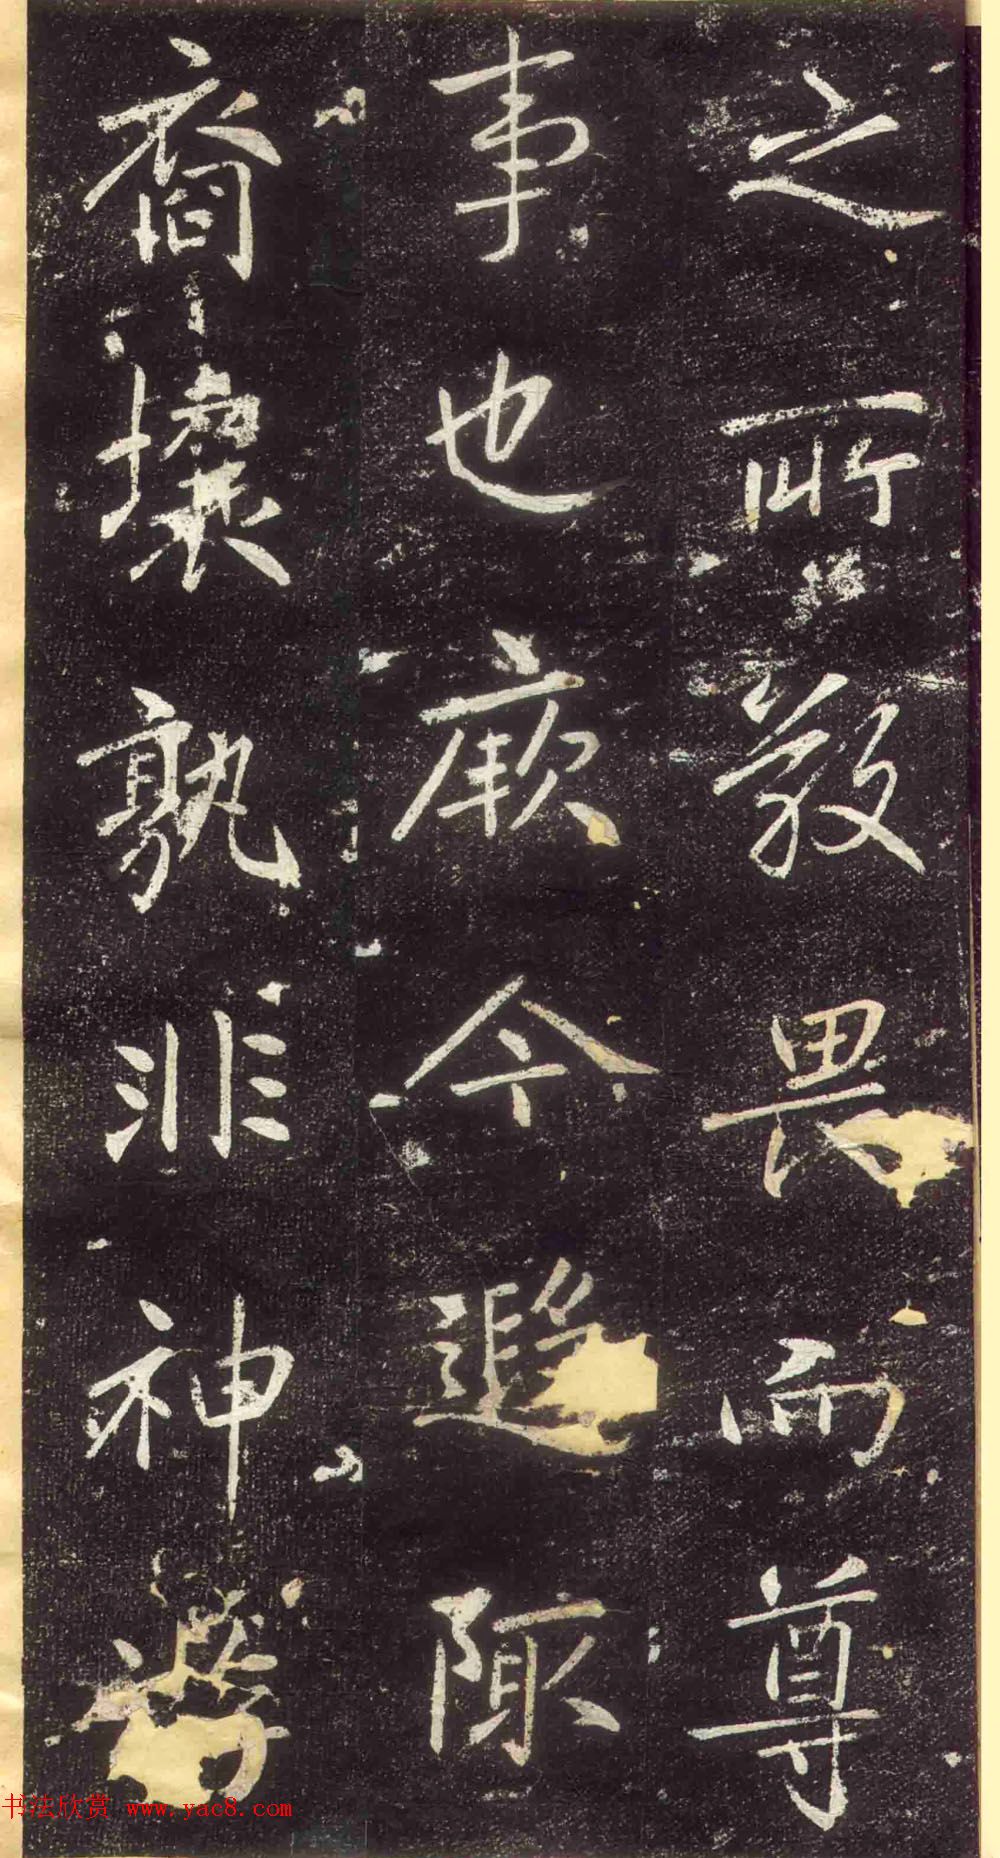 之所敬畏而尊
事也厥今遐陬
裔壤孰非神
书法欣赏 www.yac8.com